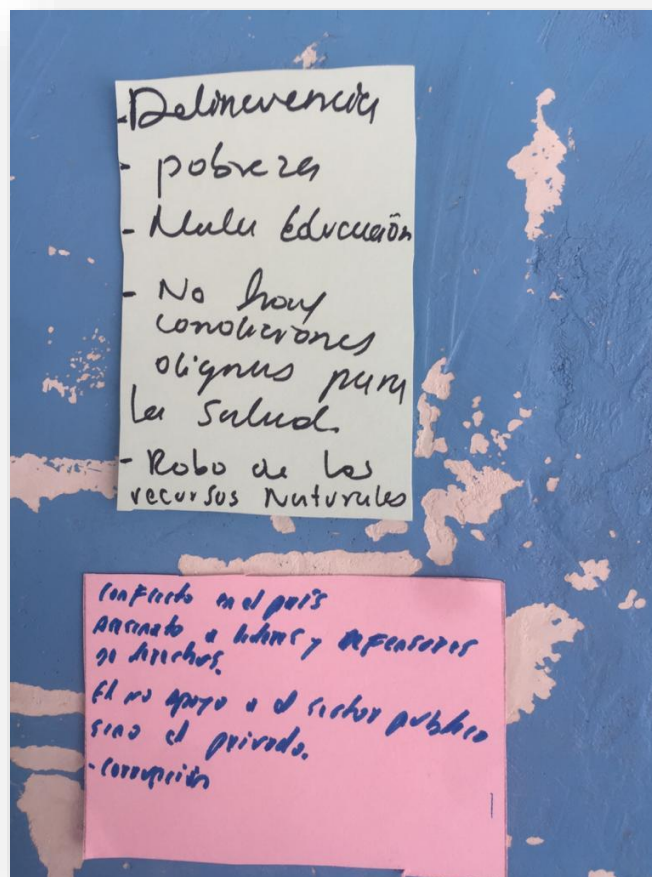 - Delincuencia
- pobreza
- Mala Educación
- No hay
condiciones
dignas para
la salud.
- Robo de los
recursos Naturales
Conflicto en el país
Asesinato a líderes y defensores
de derechos.
El no apoyo a el sector publico
sino el privado.
- Corrupción